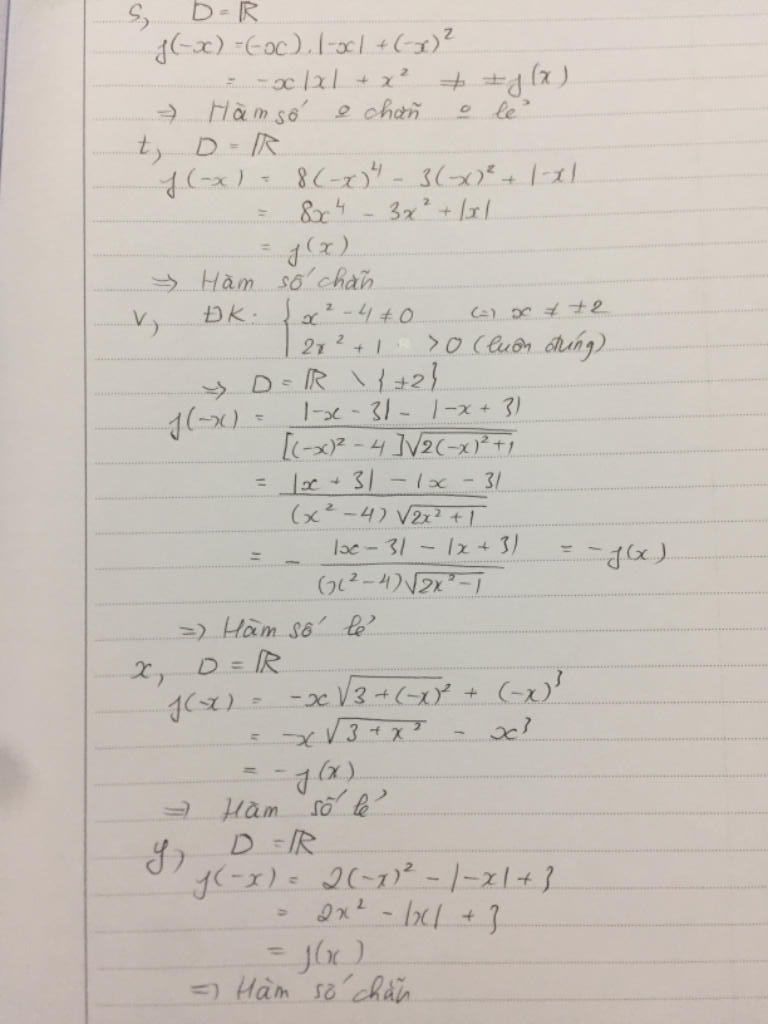 s, D = ℝ
f(-x) = (-x).|-x| + (-x)²
= -x|x| + x² ≠ ±f(x)
=> Hàm số o chẵn o lẻ
t, D = ℝ
f(-x) = 8(-x)⁴ - 3(-x)² + |-x|
= 8x⁴ - 3x² + |x|
= f(x)
=> Hàm số chẵn
v, ĐK: { x² - 4 ≠ 0 <=> x ≠ ±2
2x² + 1 > 0 (luôn đúng)
=> D = ℝ \ {±2}
f(-x) = |-x - 3| - |-x + 3| / [(-x)² - 4]√2(-x)² + 1
= |x + 3| - |x - 3| / (x² - 4)√2x² + 1
= - |x - 3| - |x + 3| / (x² - 4)√2x² - 1 = -f(x)
=> Hàm số lẻ
x, D = ℝ
f(-x) = -x√3 + (-x)² + (-x)³
= -x√3 + x² - x³
= -f(x)
=> Hàm số lẻ
y, D = ℝ
f(-x) = 2(-x)² - |-x| + 3
= 2x² - |x| + 3
= f(x)
=> Hàm số chẵn